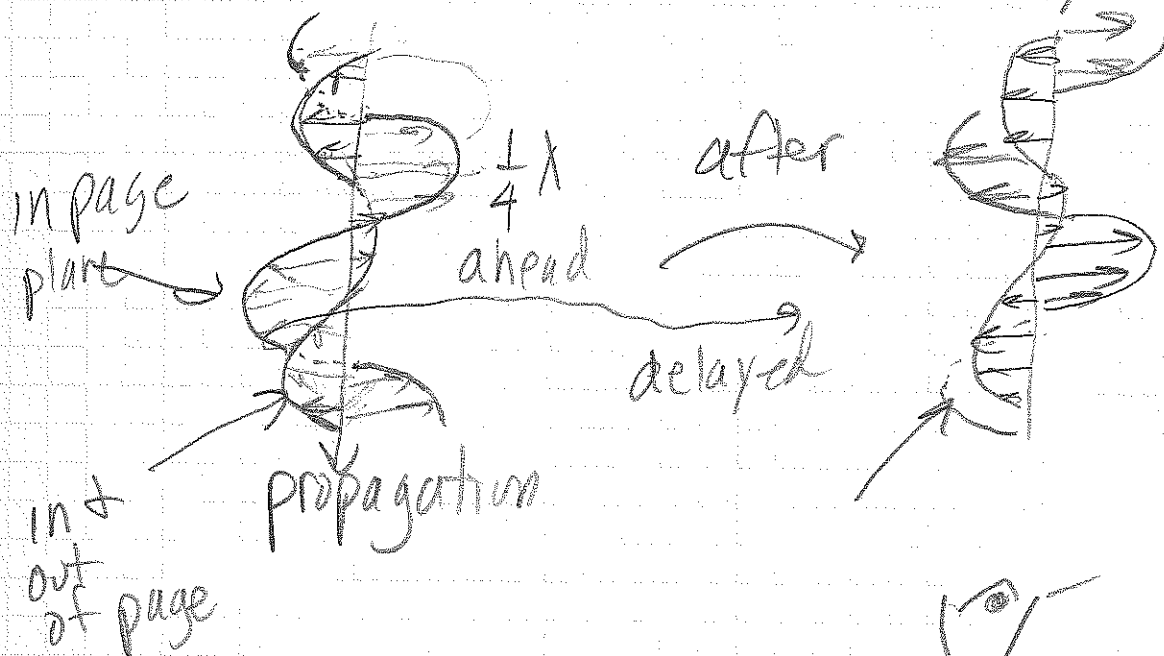 in page
plane
1/4 λ
ahead
after
delayed
propagation
in +
out
of page